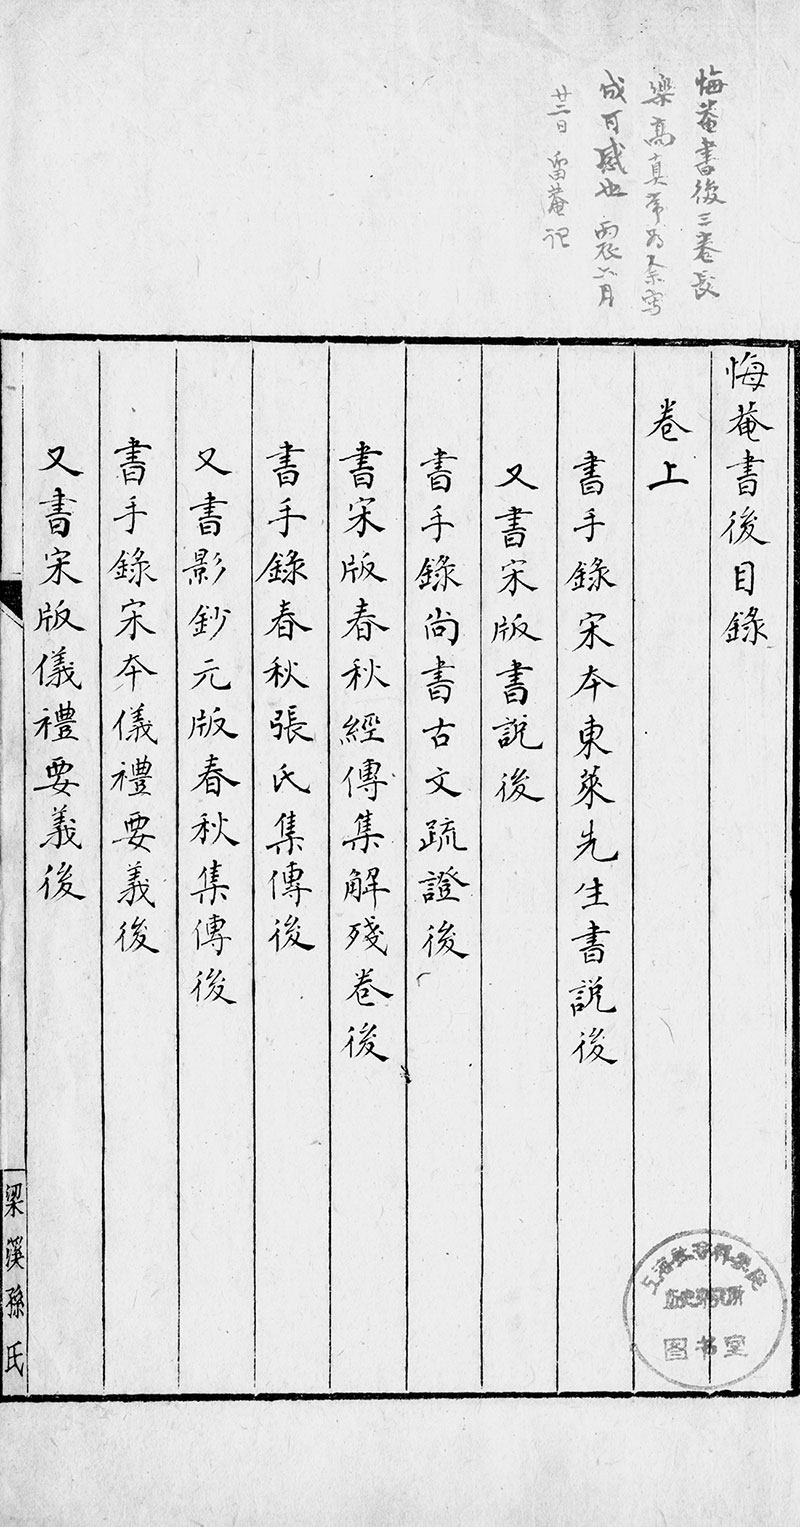 悔菴書後三卷長
樂高真常為余寫
成可感也 丙辰六月
廿二日 畱菴記
悔菴書後目錄
卷上
書手錄宋夲東萊先生書說後
又書宋版書說後
書手錄尚書古文疏證後
書宋版春秋經傳集解殘卷後
書手錄春秋張氏集傳後
又書影鈔元版春秋集傳後
書手錄宋夲儀禮要義後
又書宋版儀禮要義後
梁溪孫氏
上海社会科学院
历史研究所
图书室